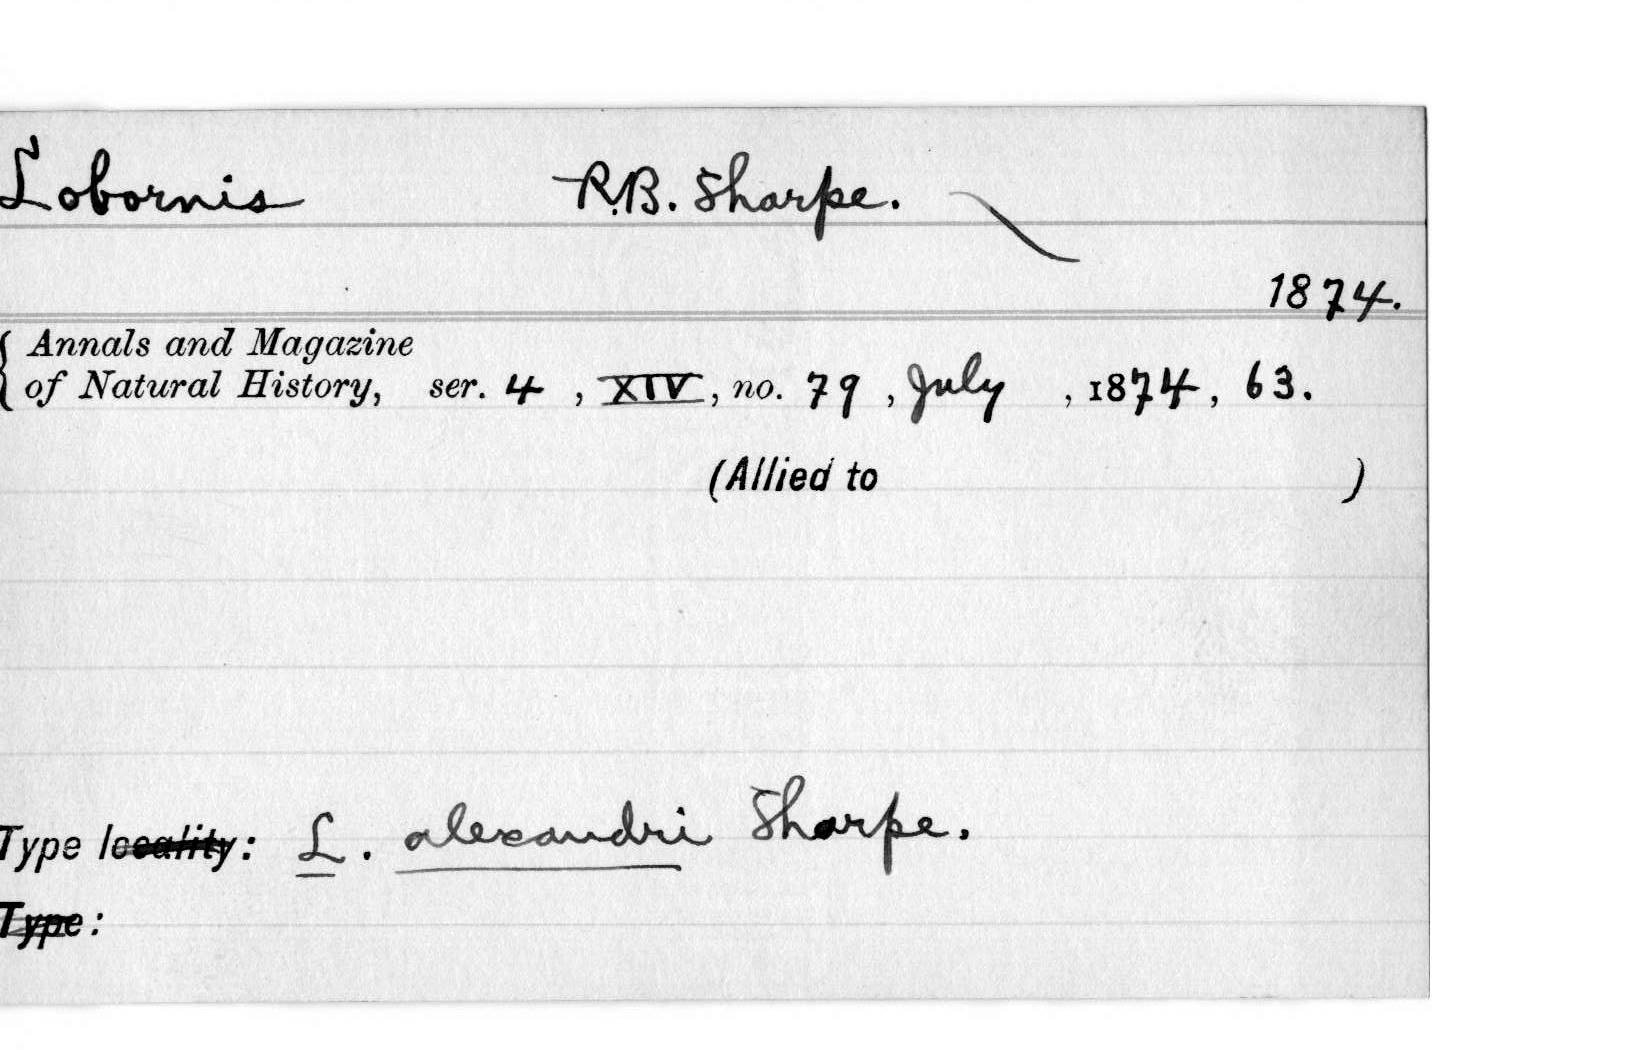 Lobornis R.B. Sharpe.
1874.
{ Annals and Magazine
of Natural History, ser. 4 , XIV, no. 79 , July , 1874, 63.
(Allied to )
Type locality: L. alexandri Sharpe.
Type: